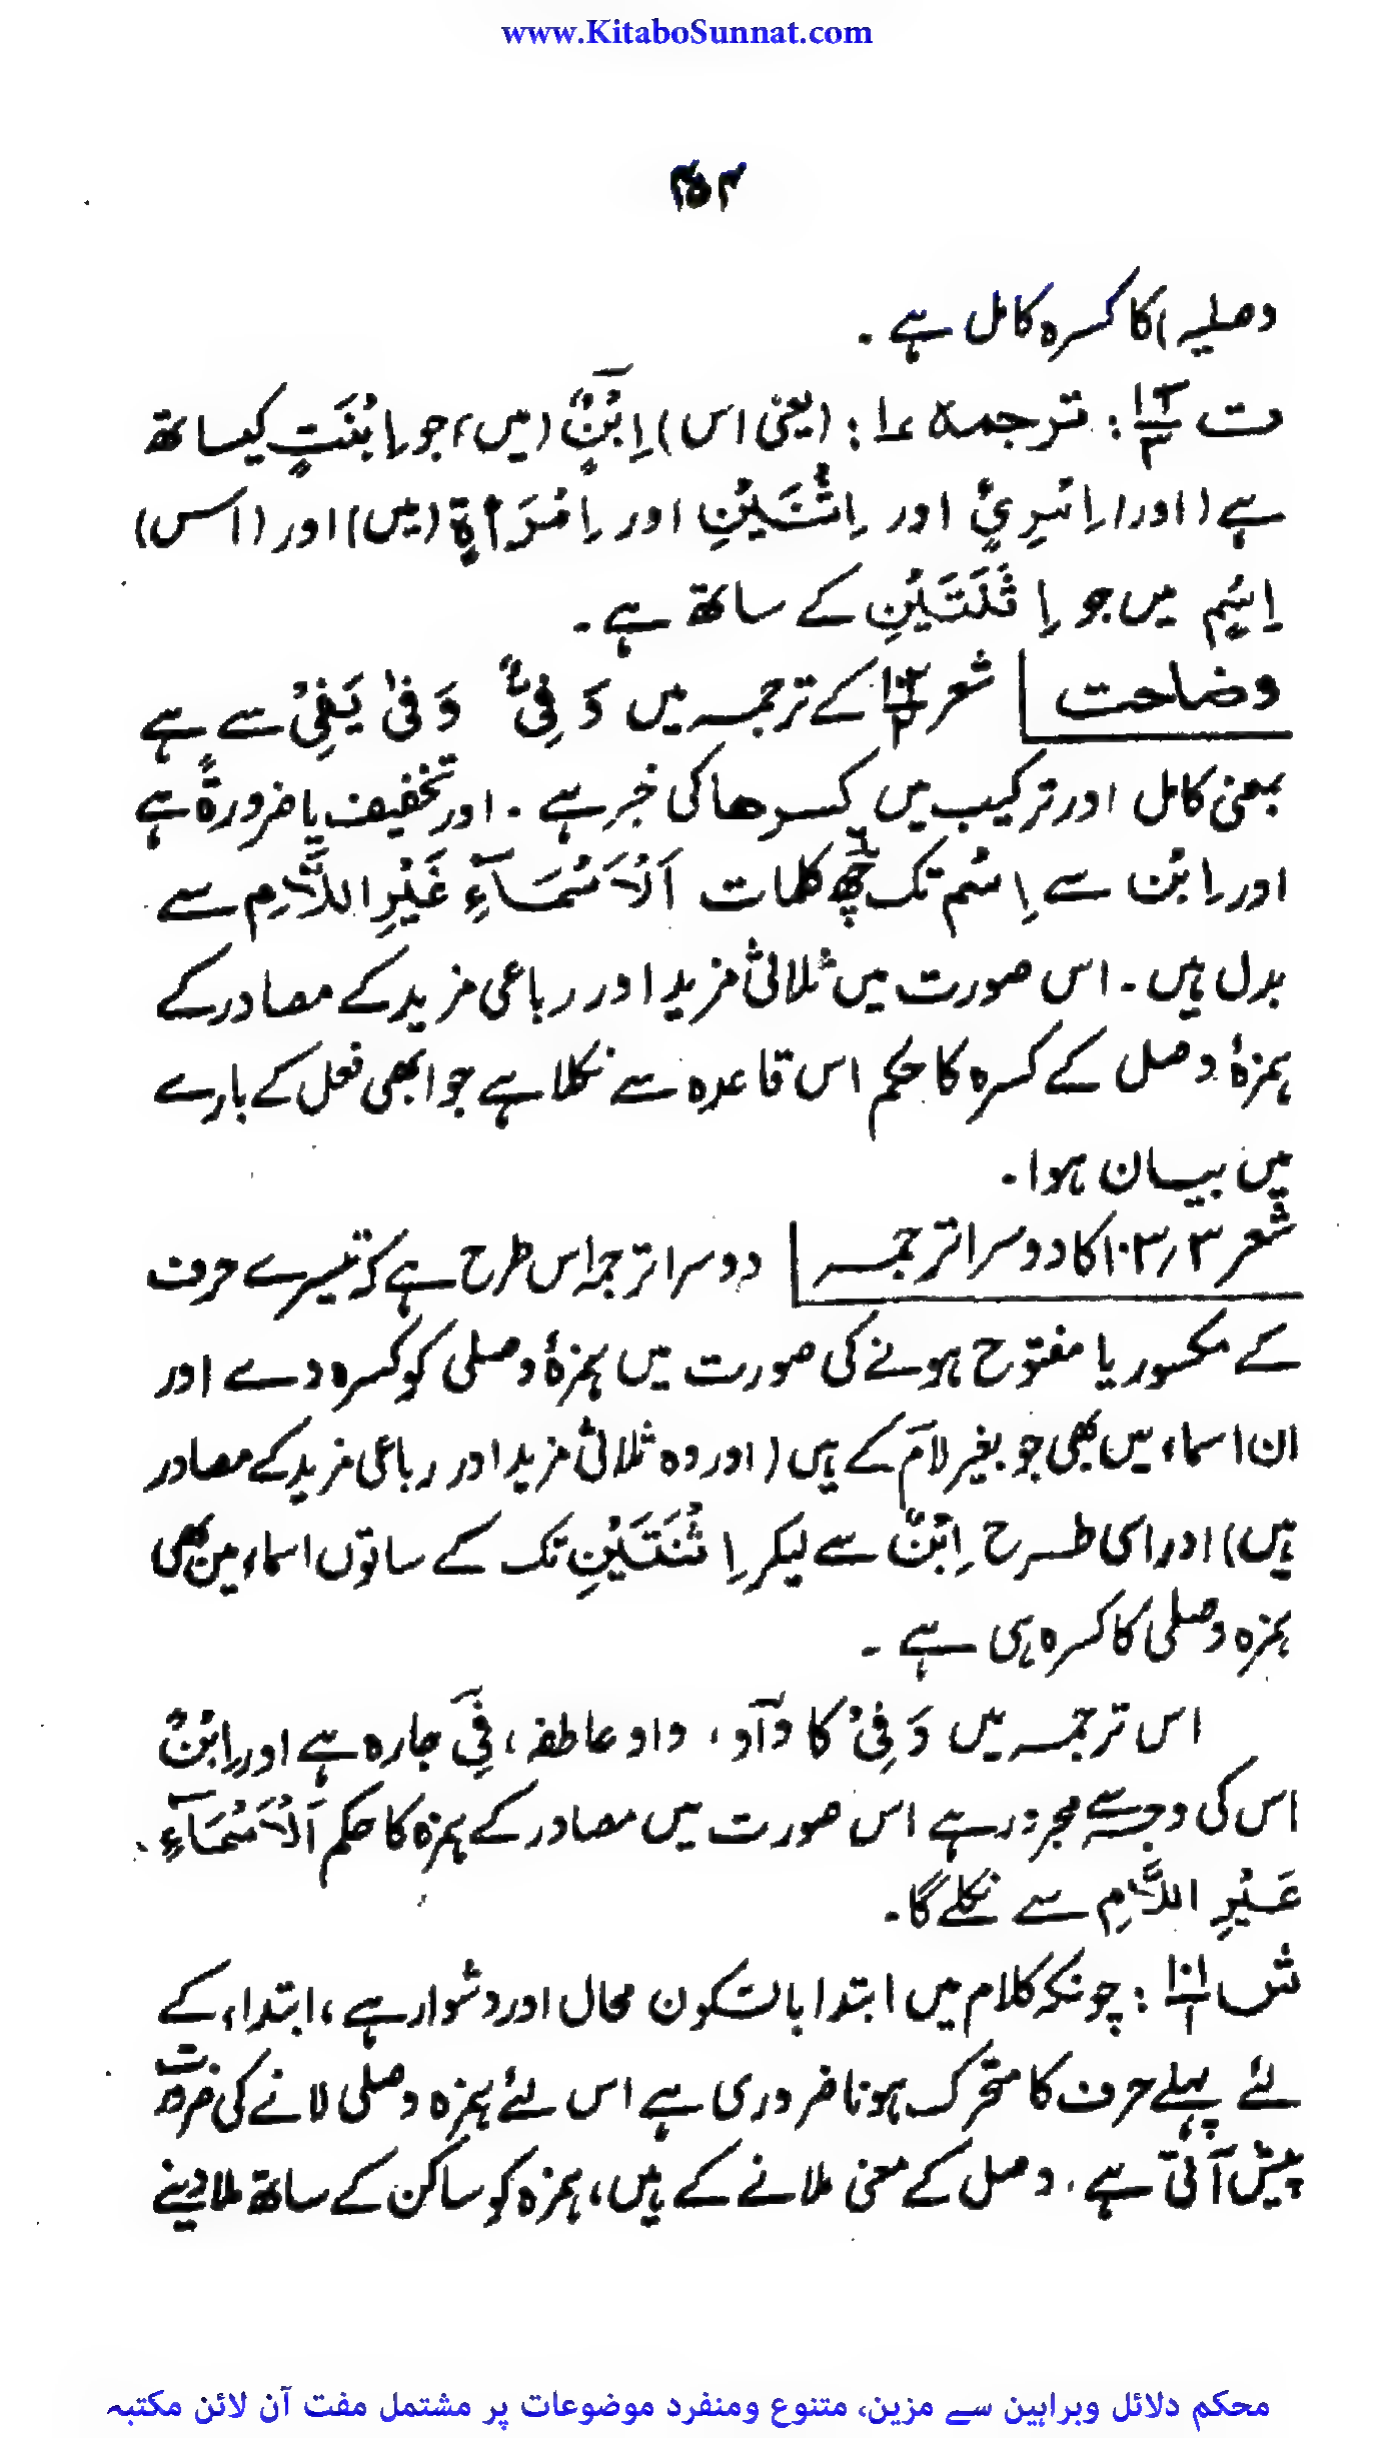 www.KitaboSunnat.com
۴۵۴
وصلیہ) کا کسرہ کامل ہے ۔
ت : ترجمہ ۱ : (یعنی اس) اِبْنٍ (میں) جو اِبْنَتٍ کیساتھ
ہے (اور) اِمْرِیٍٔ اور اِثْنَیْنِ اور اِمْرَأَةٍ (میں) اور (اس)
اِسْمٍ میں جو اِثْنَتَیْنِ کے ساتھ ہے ۔
وضاحت شعر کے ترجمہ میں وَفِیٌّ وَفیٰ یَفِیْ سے ہے
بمعنی کامل اور ترکیب میں کسرھا کی خبر ہے ۔ اور تخفیف یا ضرورةً ہے
اور اِبْن سے اِسْم تک چھ کلمات اَلْاَسْمَآءِ غَیْرِ اللَّامِ سے
بدل ہیں ۔ اس صورت میں ثلاثی مزید اور رباعی مزید کے مصادر کے
ہمزۂ وصل کے کسرہ کا حکم اس قاعدہ سے نکلا ہے جو ابھی فعل کے بارے
میں بیان ہوا ۔
شعر ۱۰۳/۳ کا دوسرا ترجمہ دوسرا ترجمہ اس طرح ہے کہ تیسرے حرف
کے مکسور یا مفتوح ہونے کی صورت میں ہمزۂ وصلی کو کسرہ دے اور
ان اسماء میں بھی جو بغیر لام کے ہیں (اور وہ ثلاثی مزید اور رباعی مزید کے مصادر
ہیں) اور اسی طرح اِبْنٌ سے لیکر اِثْنَتَیْنِ تک کے ساتوں اسماء میں بھی
ہمزہ وصلی کا کسرہ ہی ہے ۔
اس ترجمہ میں وَفِیْ کا واو ، واو عاطفہ ، فِیْ جارہ ہے اور اِبْنٌ
اس کی وجہ سے مجرور ہے اس صورت میں مصادر کے ہمزہ کا حکم اَلْاَسْمَآءِ
غَیْرِ اللَّامِ سے نکلے گا ۔
ش : چونکہ کلام میں ابتدا بالسکون محال اور دشوار ہے ، ابتداء کے
لئے پہلے حرف کا متحرک ہونا ضروری ہے اس لئے ہمزہ وصلی لانے کی ضرورت
پیش آتی ہے ، وصل کے معنی ملانے کے ہیں ، ہمزہ کو ساکن کے ساتھ ملا دینے
محکم دلائل وبراہین سے مزین، متنوع ومنفرد موضوعات پر مشتمل مفت آن لائن مکتبہ